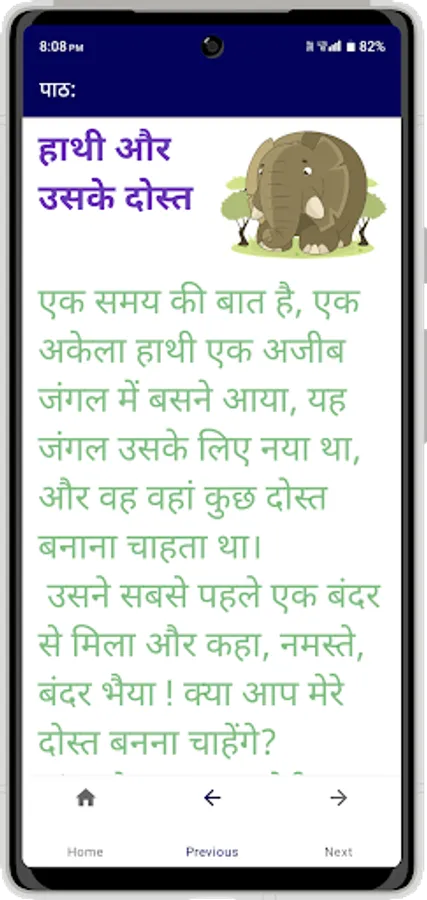 8:08 PM 82%
पाठ:
हाथी और
उसके दोस्त
एक समय की बात है, एक
अकेला हाथी एक अजीब
जंगल में बसने आया, यह
जंगल उसके लिए नया था,
और वह वहां कुछ दोस्त
बनाना चाहता था।
उसने सबसे पहले एक बंदर
से मिला और कहा, नमस्ते,
बंदर भैया ! क्या आप मेरे
दोस्त बनना चाहेंगे?
Home Previous Next